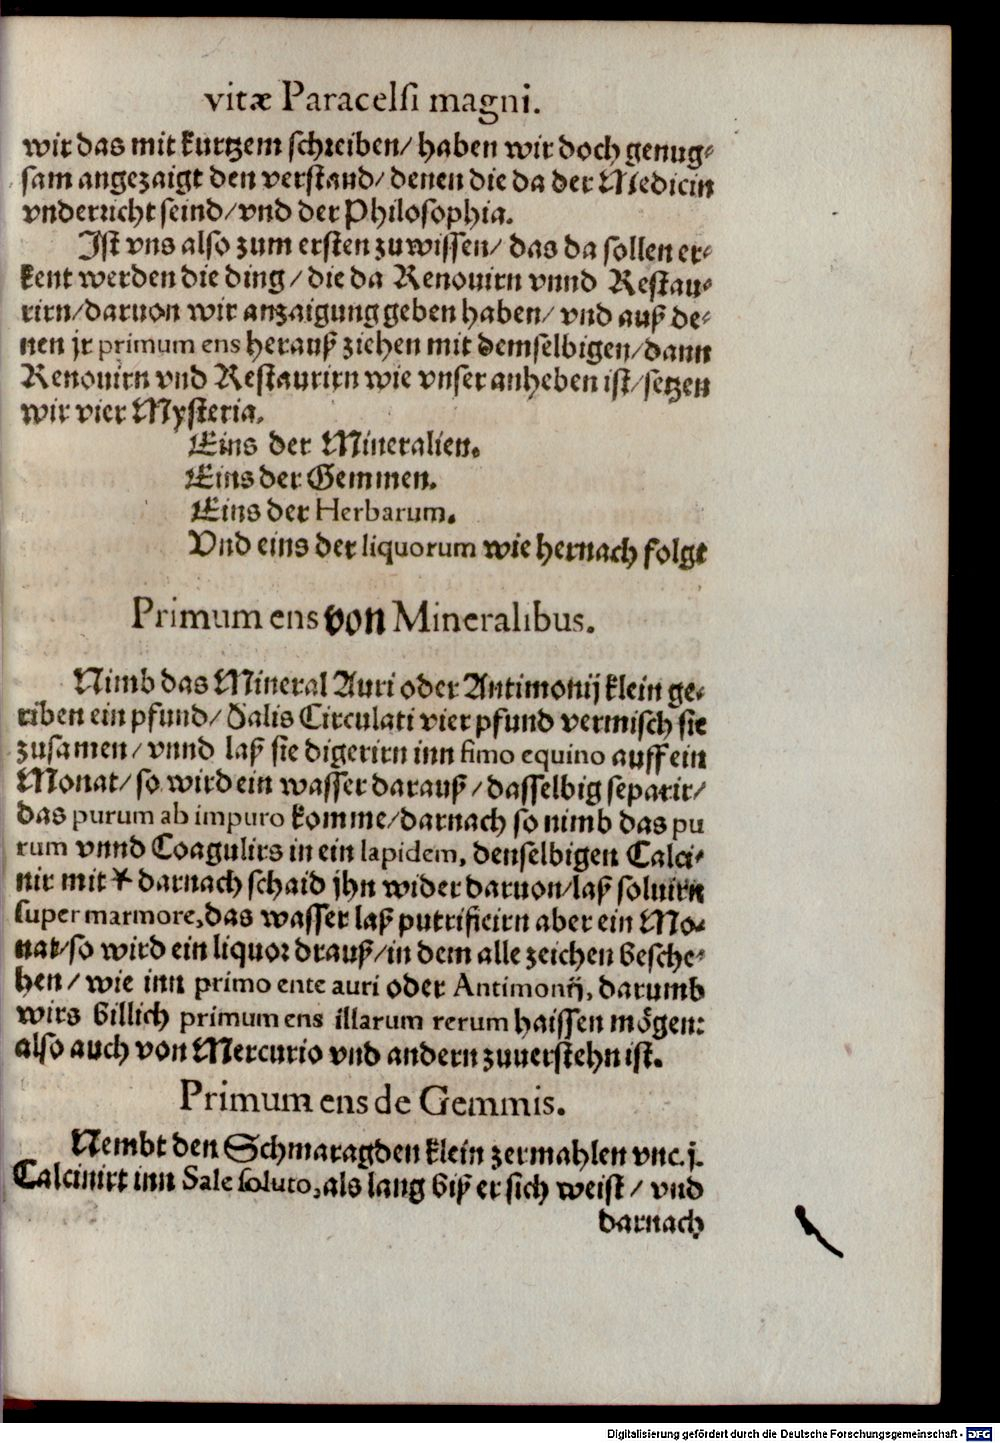 vitæ Paracelsi magni.
wir das mit kurtzem schreiben/ haben wir doch genug⸗
sam angezaigt den verstand/ denen die da der Medicin
vnderricht seind/ vnd der Philosophia.
Ist vns also zum ersten zu wissen/ das da sollen er⸗
kent werden die ding/ die da Renouirn vnnd Restau⸗
rirn/ daruon wir anzaigung geben haben/ vnd auß de⸗
nen jr primum ens herauß ziehen mit demselbigen/ dann
Renouirn vnd Restaurirn wie vnser anheben ist/ setzen
wir vier Mysteria.
Eins der Mineralien.
Eins der Gemmen.
Eins der Herbarum.
Vnd eins der liquorum wie hernach folgt
Primum ens von Mineralibus.
Nimb das Mineral Auri oder Antimonij klein ge⸗
riben ein pfund/ Salis Circulati vier pfund vermisch sie
zusamen/ vnnd laß sie digerirn inn fimo equino auff ein
Monat/ so wird ein wasser darauß/ dasselbig separir/
das purum ab impuro komme/ darnach so nimb das pu
rum vnnd Coagulirs in ein lapidem, denselbigen Calci⸗
nir mit darnach schaid jhn wider daruon/ laß soluirn
super marmore, das wasser laß putrificirn aber ein Mo⸗
nat/ so wird ein liquor drauß/ in dem alle zeichen besche⸗
hen/ wie inn primo ente auri oder Antimonij, darumb
wirs billich primum ens illarum rerum haissen mögen:
also auch von Mercurio vnd andern zuuerstehn ist.
Primum ens de Gemmis.
Nembt den Schmaragden klein zermahlen vnc. j.
Calcinirt inn Sale soluto, als lang biß er sich weist/ vnd
darnach
Digitalisierung gefördert durch die Deutsche Forschungsgemeinschaft - DFG